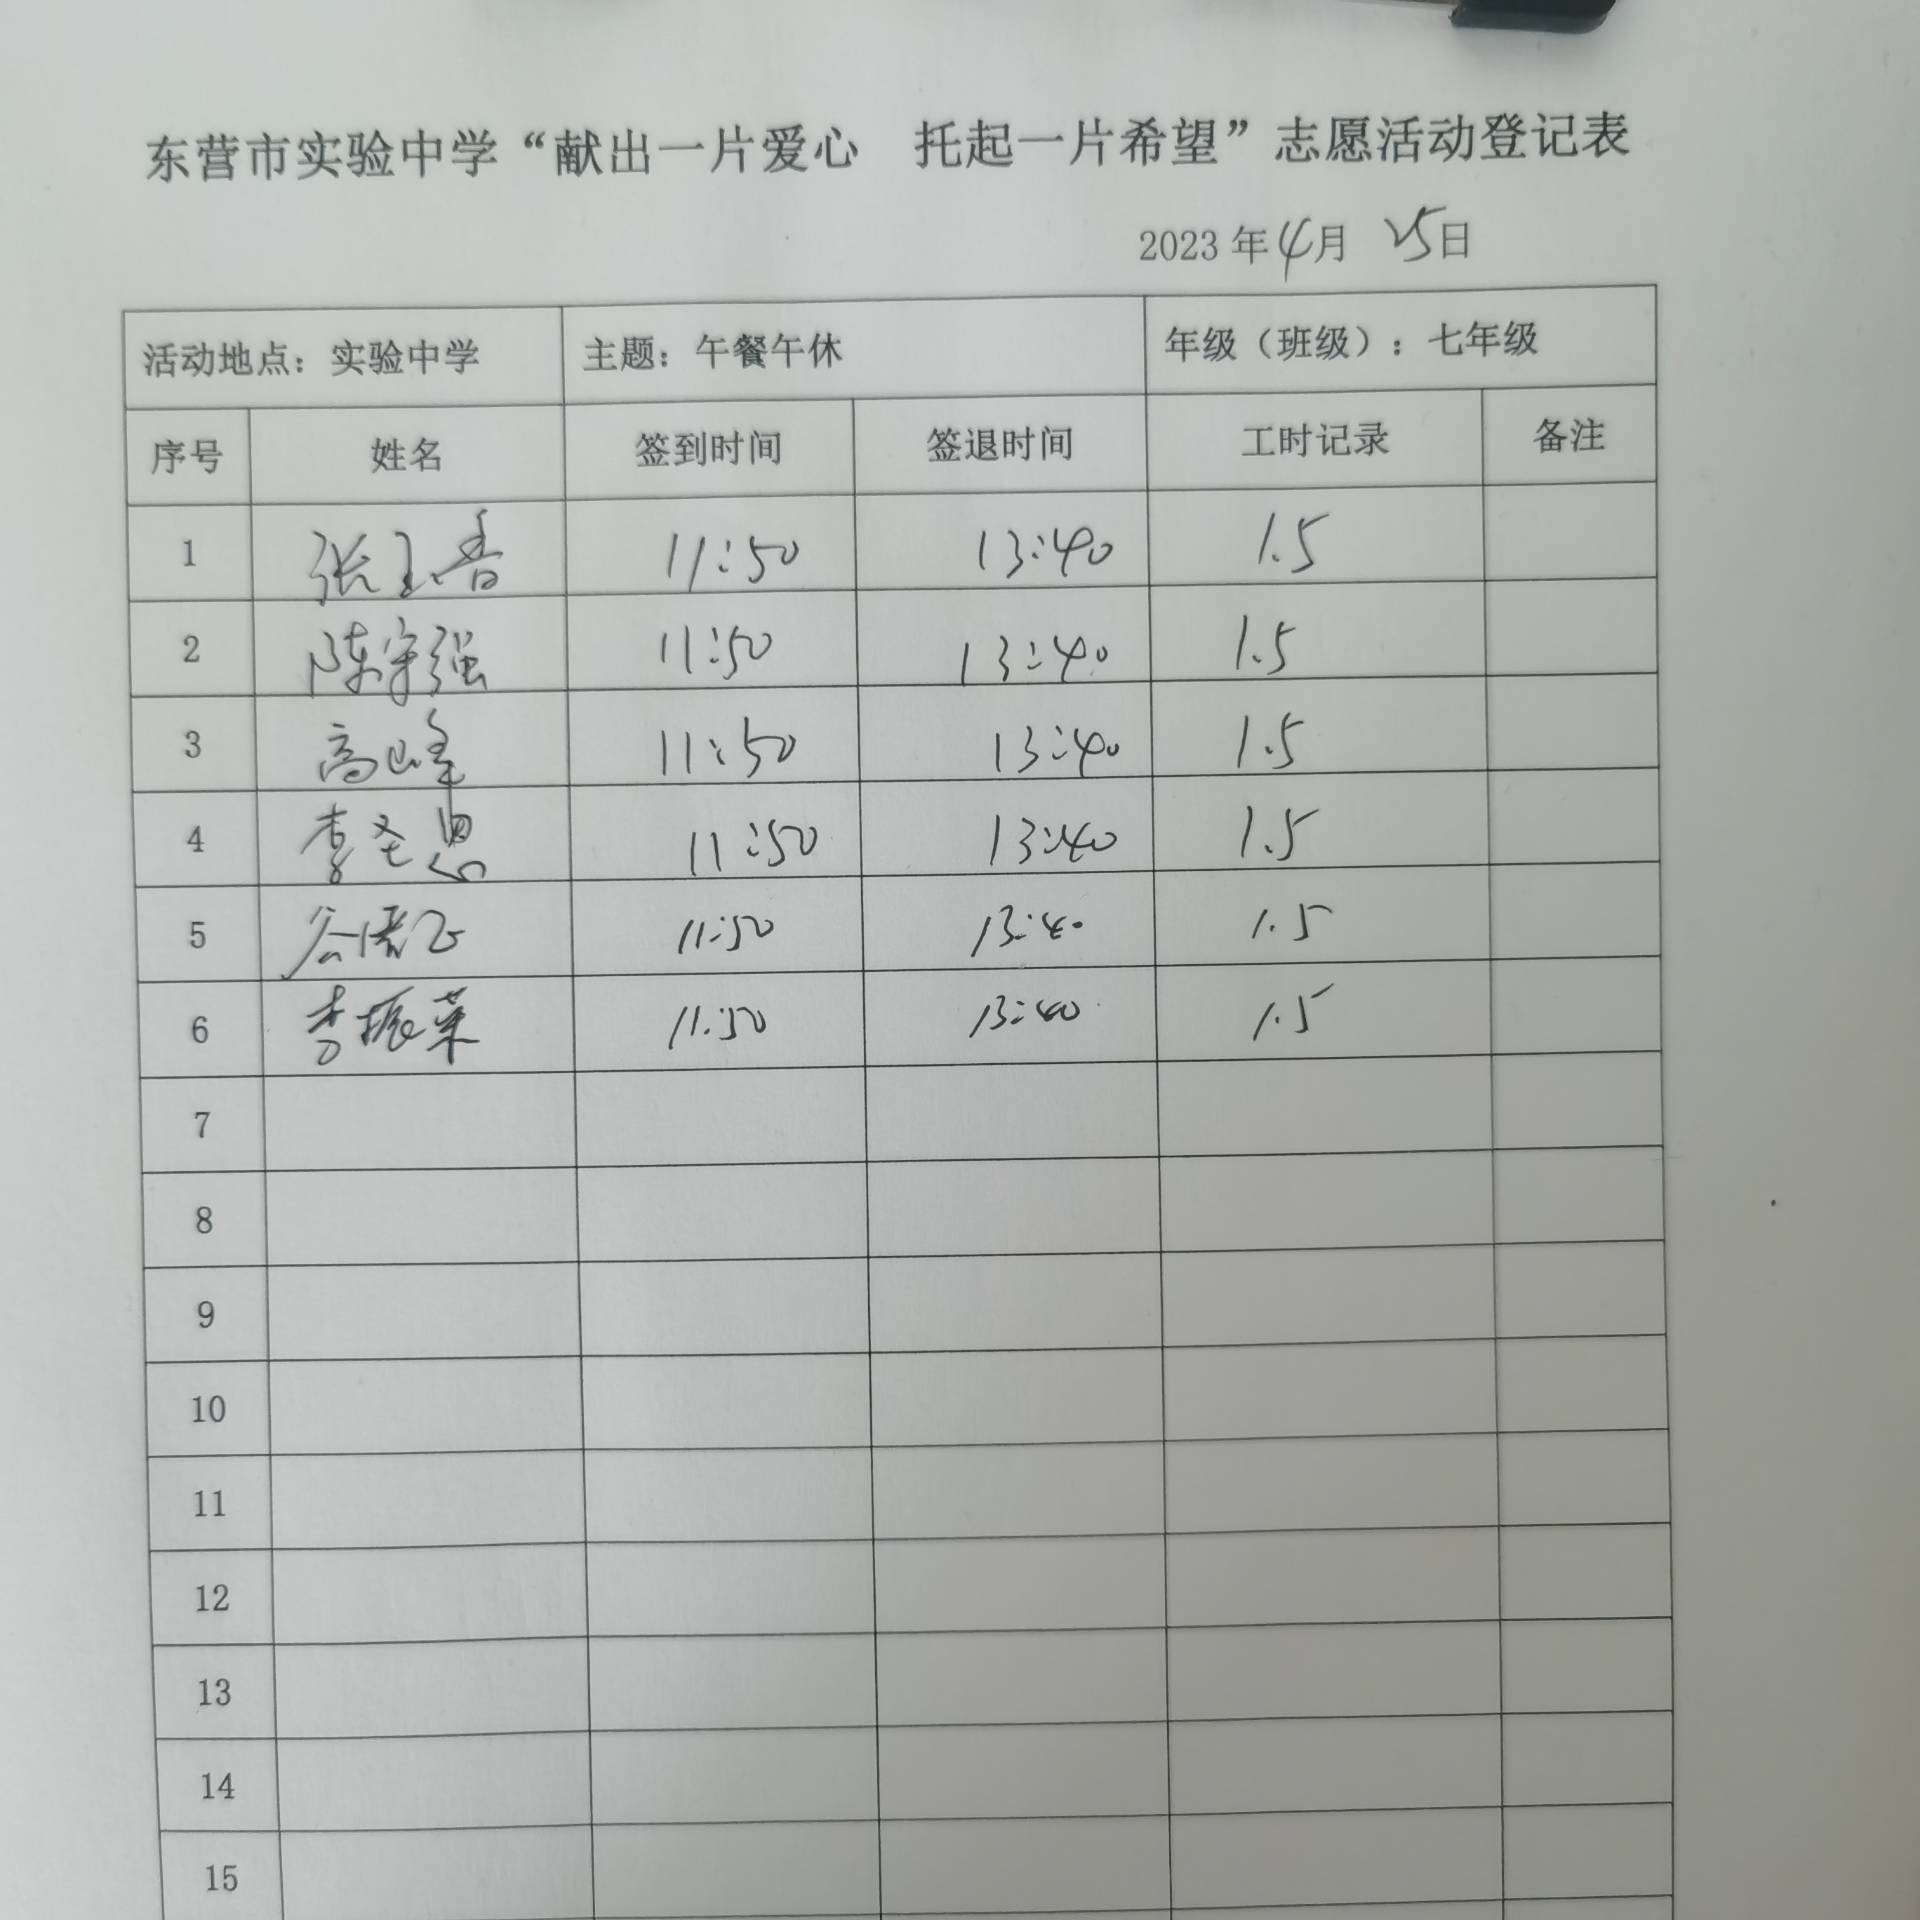 东营市实验中学“献出一片爱心 托起一片希望”志愿活动登记表
2023年4月25日
活动地点：实验中学 主题：午餐午休 年级（班级）：七年级
序号 姓名 签到时间 签退时间 工时记录 备注
1 张玉香 11:50 13:40 1.5
2 陈宇强 11:50 13:40 1.5
3 高峰 11:50 13:40 1.5
4 李圣恩 11:50 13:40 1.5
5 11:50 13:40 1.5
6 李振荣 11:50 13:40 1.5
7
8
9
10
11
12
13
14
15